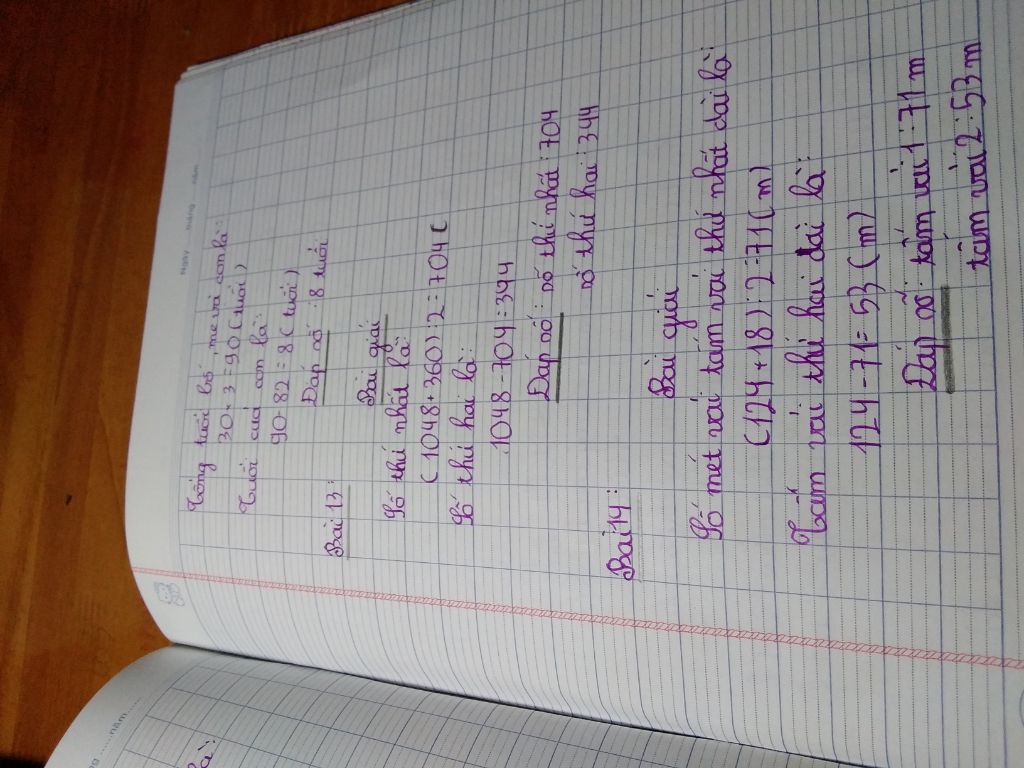 Ngày tháng năm
Tổng tuổi bố, mẹ và con là:
30 x 3 = 90 (tuổi)
Tuổi của con là:
90 - 82 = 8 (tuổi)
Đáp số : 8 tuổi
Bài 13:
Bài giải
Số thứ nhất là
(1048+360):2=704(
Số thứ hai là:
1048-704=344
Đáp số: số thứ nhất: 704
số thứ hai: 344
Bài 14:
Bài giải
Số mét vải tấm vải thứ nhất dài là:
(124+18):2=71(m)
Tấm vải thứ hai dài là:
124-71=53(m)
Đáp số: tấm vải 1: 71m
tấm vải 2: 53m
năm